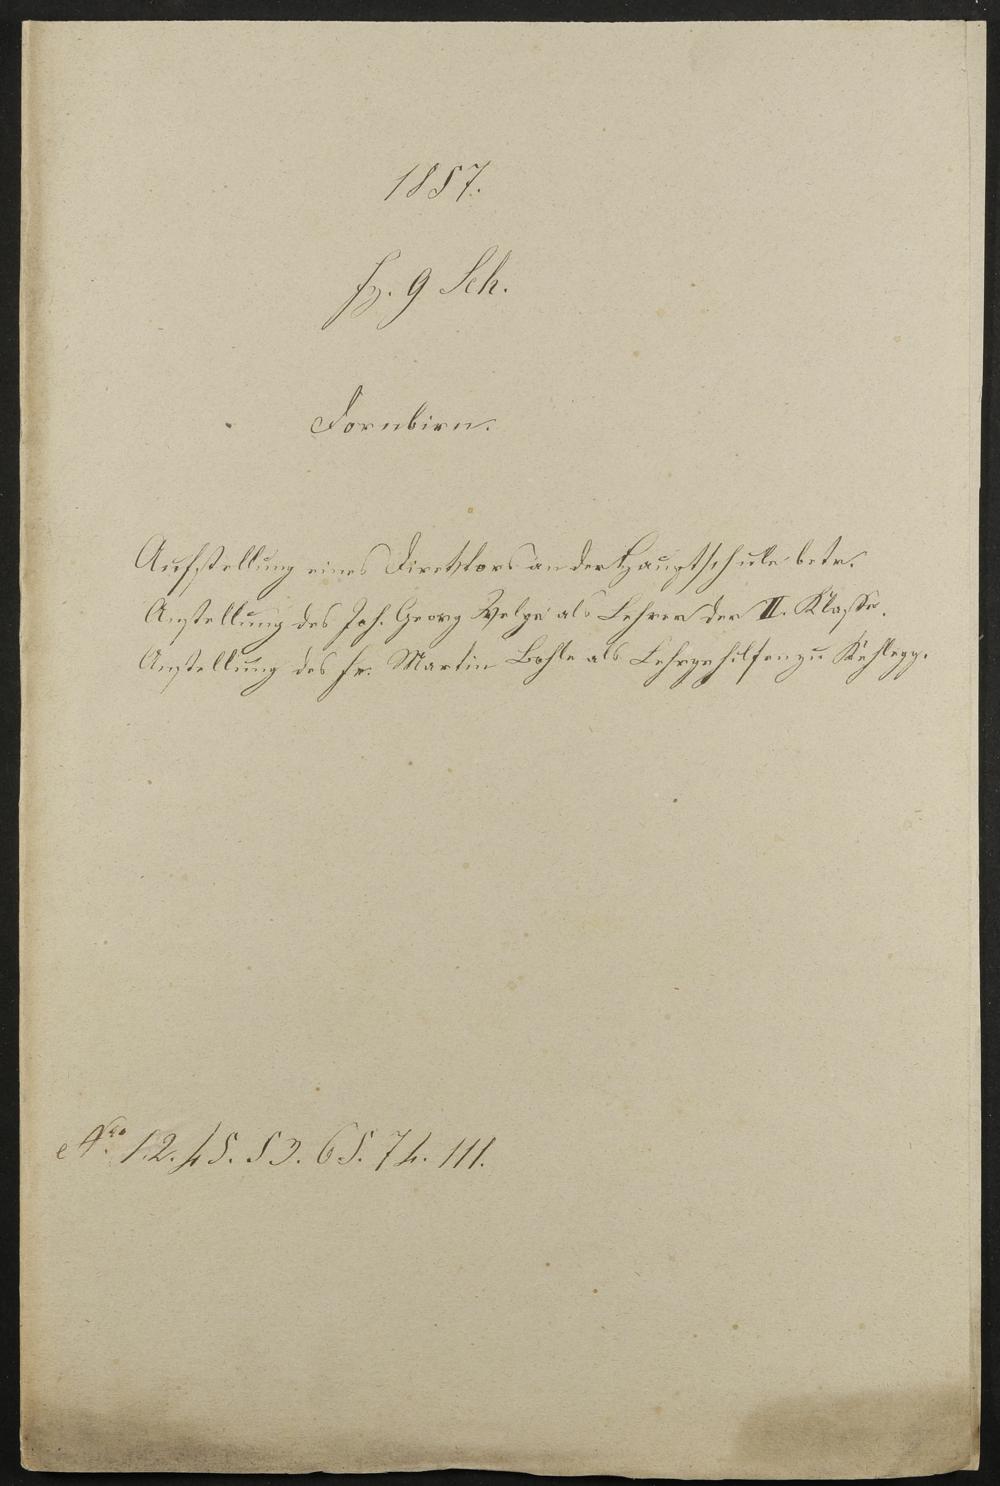 1857.
Fz. 9 Sch.
Dornbirn.
Aufstellung eines Direktors an der Hauptschule betr.
Anstellung des Joh. Georg als Lehrer der II. Klasse.
Anstellung des Fr. Martin Bohle als Lehrgehilfen zu Kehlegg.
Nro. 1.2. 45. 53. 65. 74. 111.